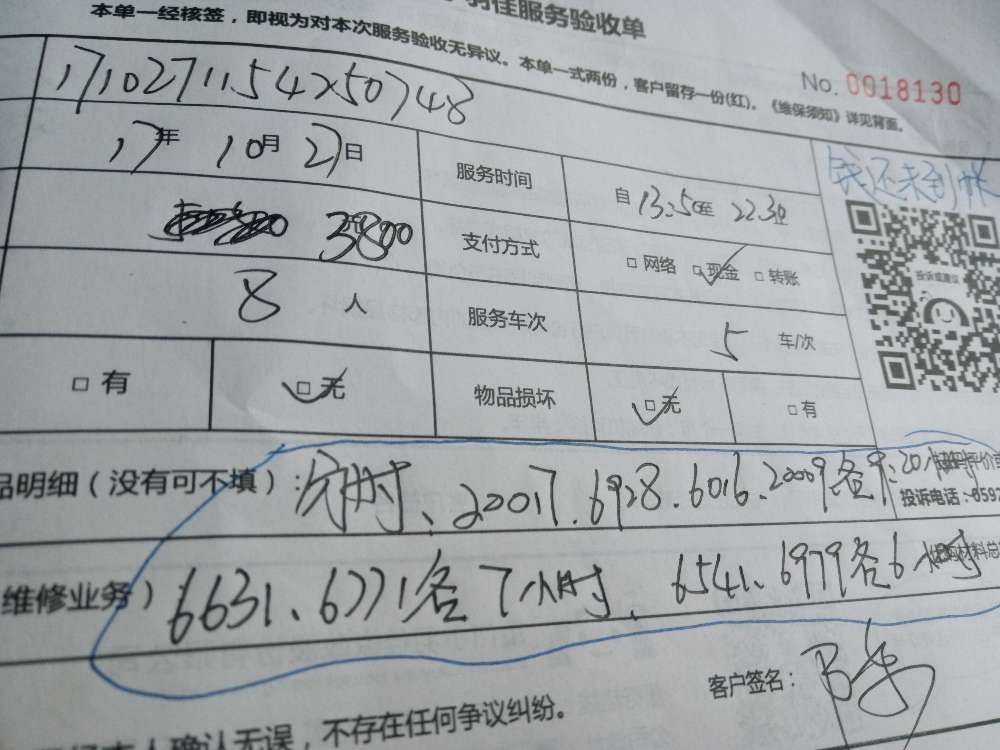 佳服务验收单
本单一经核签，即视为对本次服务验收无异议。本单一式两份，客户留存一份(红)。《维保须知》详见背面。
No. 0018130
1710271154250748
钱还未到帐
17年 10月 27日 服务时间 自 13:50至 22:30
3800 支付方式 □网络 □现金 □转账
投诉或建议
8 人 服务车次 5 车/次
□有 □无 物品损坏 □无 □有
品明细（没有可不填）: 计时、20017.6928.6016.20009各9.
投诉电话:
维修业务） 6631、6771各7小时、6541、6979各6小时
客户签名:
本人确认无误，不存在任何争议纠纷。